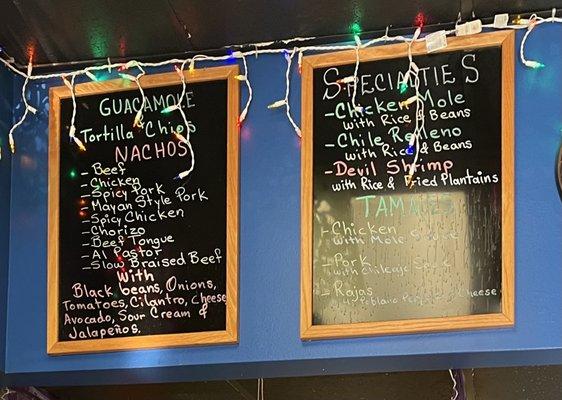 GUACAMOLE
Tortilla Chips
NACHOS
- Beef
- Chicken
- Spicy Pork
- Mayan Style Pork
- Spicy Chicken
- Chorizo
- Beef Tongue
- Al Pastor
- Slow Braised Beef
With
Black beans, Onions,
Tomatoes, Cilantro, cheese
Avocado, Sour Cream &
Jalapeños.
SPECIALTIES
- Chicken Mole
with Rice & Beans
- Chile Relleno
with Rice & Beans
- Devil Shrimp
with Rice & Fried Plantains
TAMALES
- Chicken
with Mole
- Pork
with
- Rajas
Poblano & Cheese